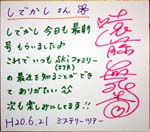 しでかしさん江
しでかし今日も最新
号もらいましたよ
これでいつもSKiファミリー
の最近を知ることができ
てありがたい
次も楽しみにしてます!!
H20.6.21 ミステリーツアー